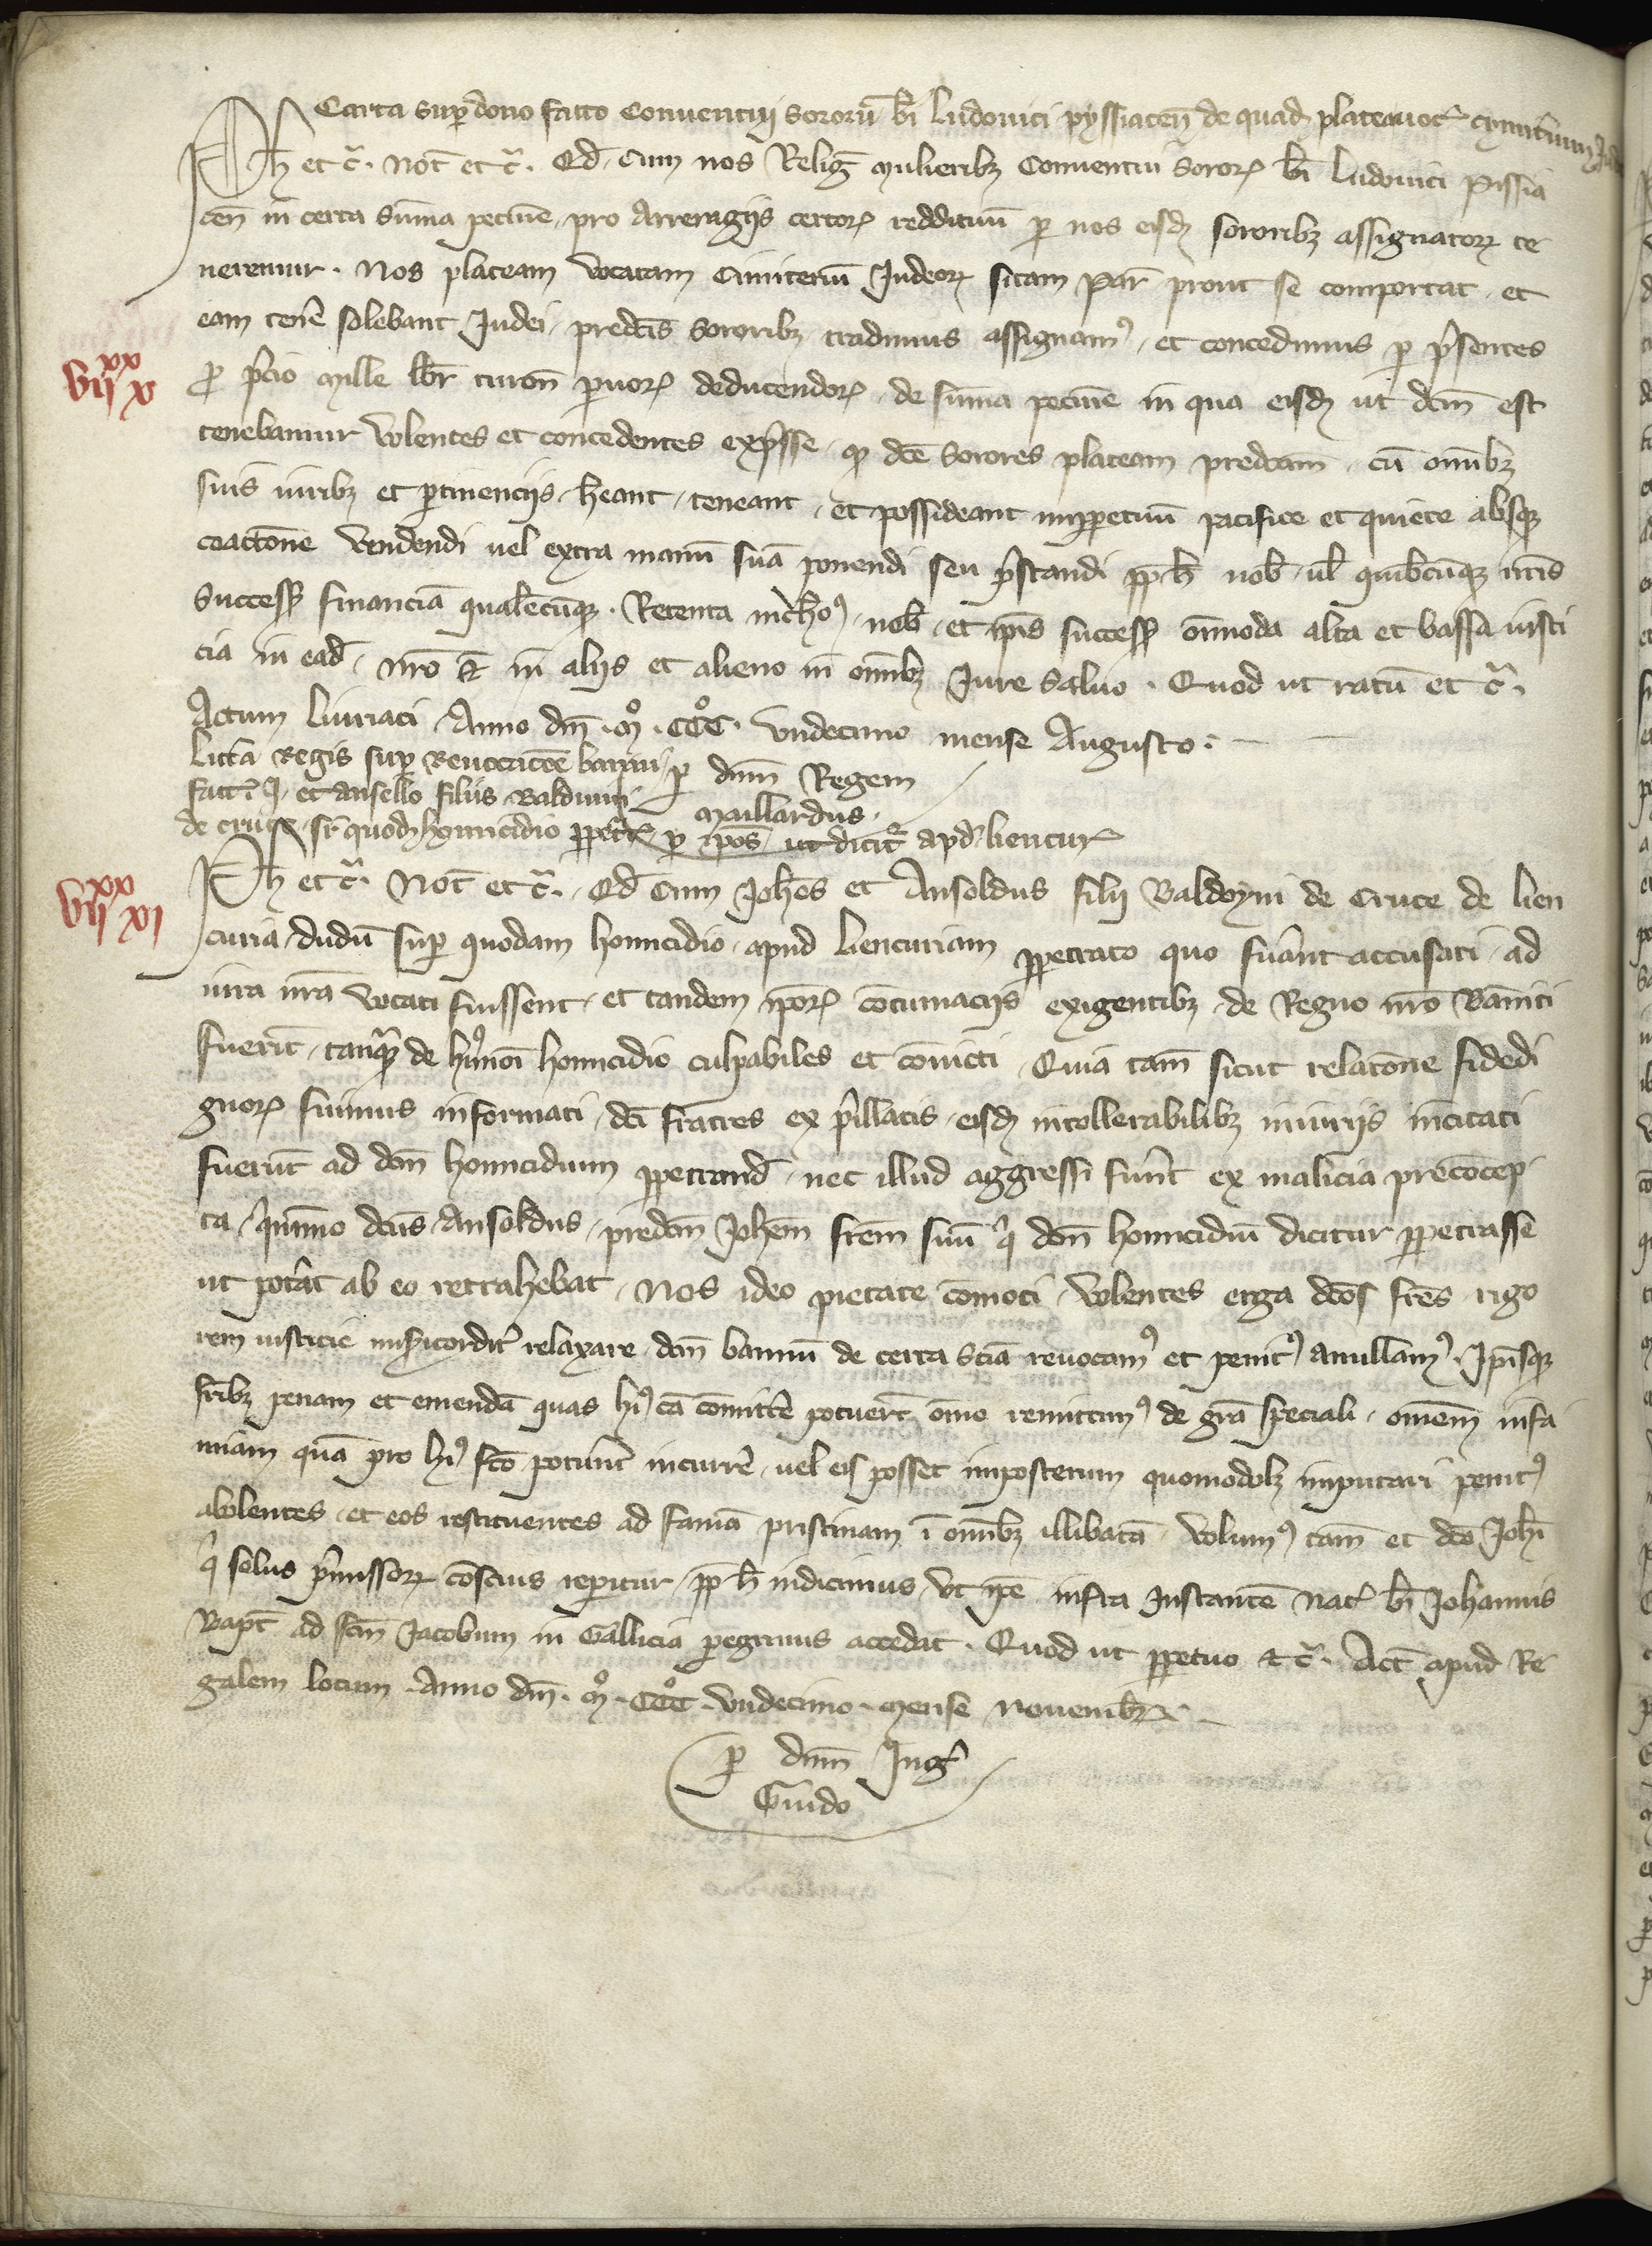 Carta sup dono facto Conventui sororū bi Ludovici pyssiaceñ de quad platea voc cymiterium Jud
Ph et c̃. Not et c̃. Qd cum nos Relig mulieribz Conventui Soror bi Ludovici Pissia
ceñ in certa sum̄a pecunie pro arreragiis certor reddituū p nos eisd sororibz assignator te
neremur. Nos plateam vocatam Cimiteriū Judeor sitam Par prout se comportat et
eam tenē solebant Judei predc̄is Sororibz tradimus assignam9 et concedimus p p̄sentes
vii xx x
p p̄cio mille lbr turoñ pvuor deducendor de sum̄a pecunie in qua eisd ut dc̄m est
tenebamur Volentes et concedentes exp̄sse q dc̄e Sorores plateam predc̄am cū om̄ibz
suis iuribz et ptinenciis heant teneant et possideant imppetuū pacifice et quiete absqz
coactōne vendendi uel extra manū suā ponendi seu p̄standi pp h nob ul quibcūqz nr̄is
Success financiā qualēcūqz. Retenta nichō9 nob et ip̄is success om̄moda alta et bassa iusti
cia in ead nr̄o & in aliis et alieno in om̄ibz Jure Salvo. Quod ut ratū et c̃.
Actum Livriaci Anno dñi. mº. CCCº. Undecimo mense Augusto.
Littā Regis sup Revocacōe banni p dnm̄ Regem
Maillardus.
fact J. et Ansello filiis Balduini
de cruce sr quod homicidio ppetr p ip̄os ut dicit apd liencur
vii xx xi
Ph et c̃. Not et c̃. Qd Cum Joh̄es et Ansoldus filii Baldoyni de Cruce de lien
curia dudū sup quodam homicidio apud Liencuriam ppetrato quo fūant accusati ad
iura nr̄a vocati fuissent et tandem ip̄or cōtumaciis exigentibz de Regno nr̄o Bāniti
fuerīt tanq̄ de hmōi homicidio culpabiles et cōvicti Quia tam̄ sicut relatōne fidedi
gnor fuimus informati dc̄i fratres ex p̄illatis eisd intollerabilibz iniuriis incitati
fuerūt ad dc̄m homicidium ppetrand nec illud aggressi fūnt ex malicia precōcep
ta q̄nimo dc̄us Ansoldus predc̄m Joh̄em fr̄em suū q dc̄m homicidiū dicitur ppetrasse
ut potāt ab eo retrahebat. Nos ideo pietate cōmoti volentes erga dc̄os fr̄es rigo
rem iusticie mis̄icordit relaxare dc̄m bannū de certa sc̄iā revocam9 et penit9 anullam9. Ip̄isqz
fr̄ibz penam et emendā quas hi9 cā cōmittē potuerīt om̄o remittim9 de gr̄a speciali om̄em infa
miam quā pro hi9 fc̄o potuīt incurrē uel eis posset imposterum quomodolz imputari penit9
abolentes et eos restituentes ad famā pristinam ī om̄ibz illibatā Volum9 tam̄ et dc̄o Joh̄i
q solus p̄missor cōscius repitur pp h indicimus ut ip̄e infra Instantē Nat bi Johannis
Bapt ad sc̄m Jacobum in Gallicia pegrinus accedat. Quod ut ppetuo & c̃. Act̄ apud Re
galem locum Anno dñi. mº. CCCº. undecimo. mense Novembr.
p dnm̄ Ing
Guido